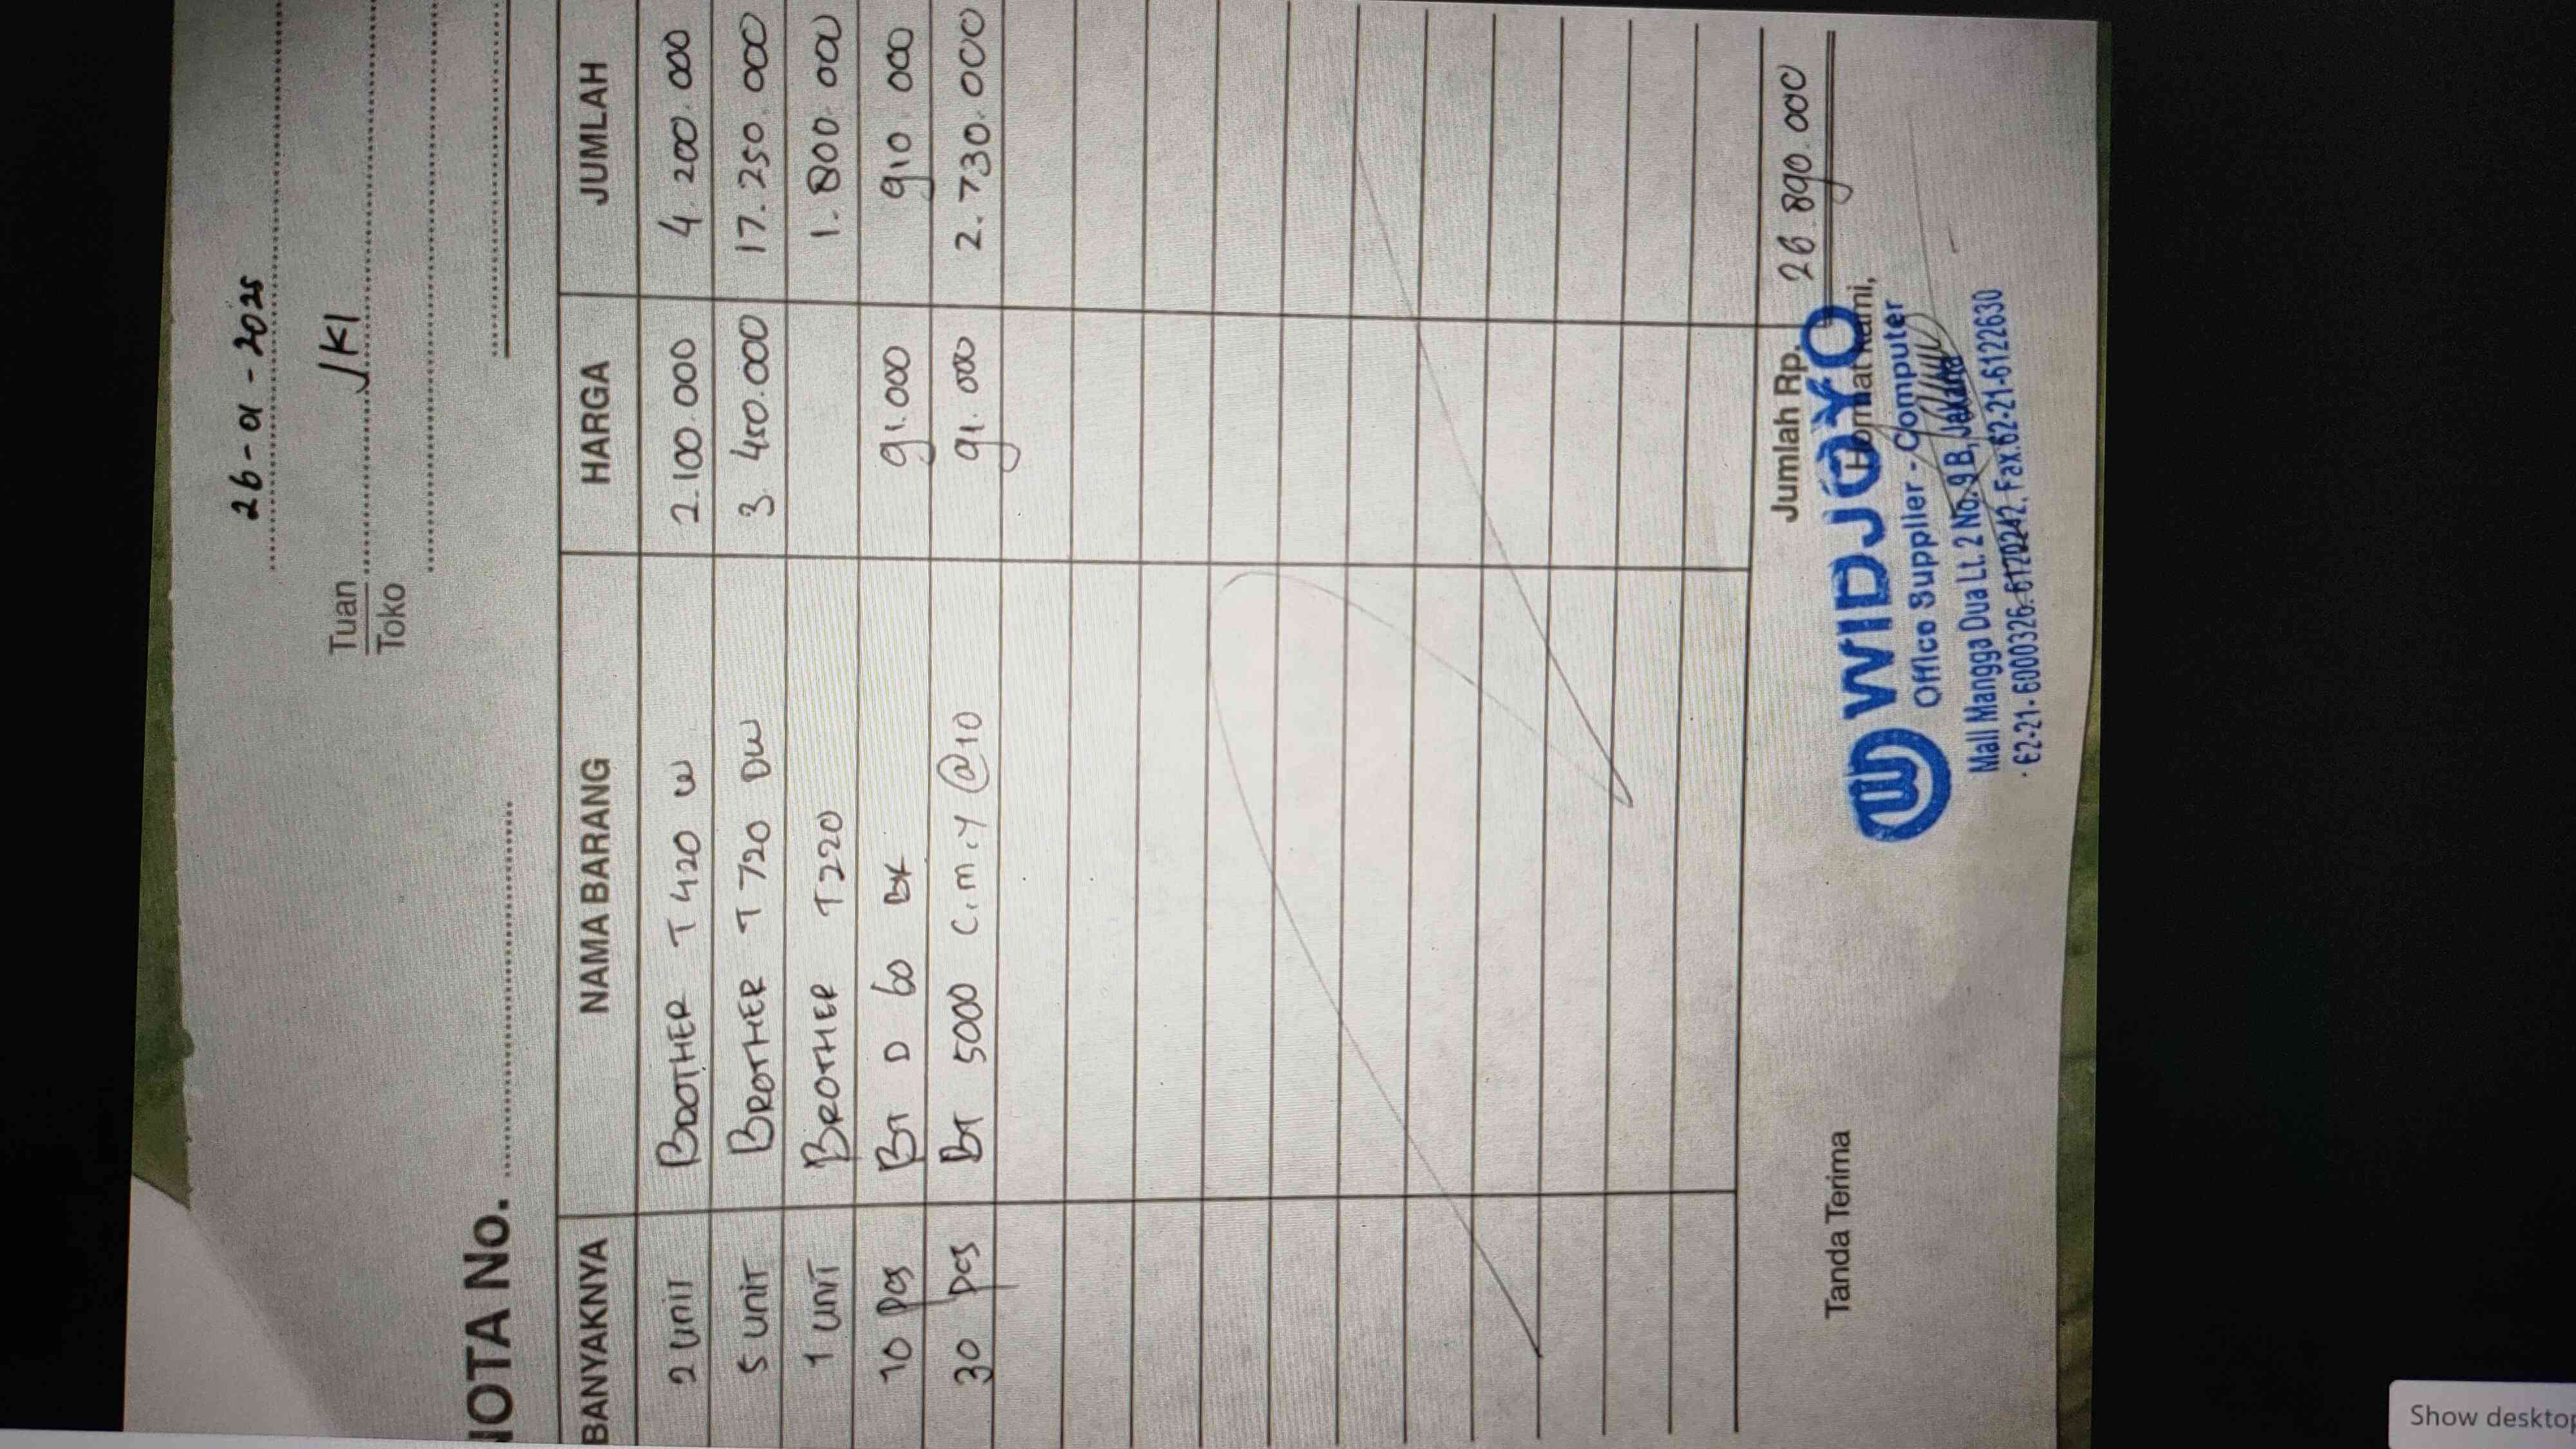 26-01-2025
Tuan JKI
Toko
NOTA No.
BANYAKNYA NAMA BARANG HARGA JUMLAH
2 Unit BROTHER T 420 W 2.100.000 4.200.000
5 Unit BROTHER T 720 DW 3.450.000 17.250.000
1 Unit BROTHER T220 1.800.000
10 pcs BT D 60 BK 91.000 910.000
30 pcs BT 5000 C.M.Y @10 91.000 2.730.000
Jumlah Rp. 26.890.000
Tanda Terima Hormat kami,
WIDJOYO
Office Supplier - Computer
Mall Mangga Dua Lt. 2 No. 9 B, Jakarta
62-21-6000326. 6120242. Fax.62-21-6122630
Show desktop